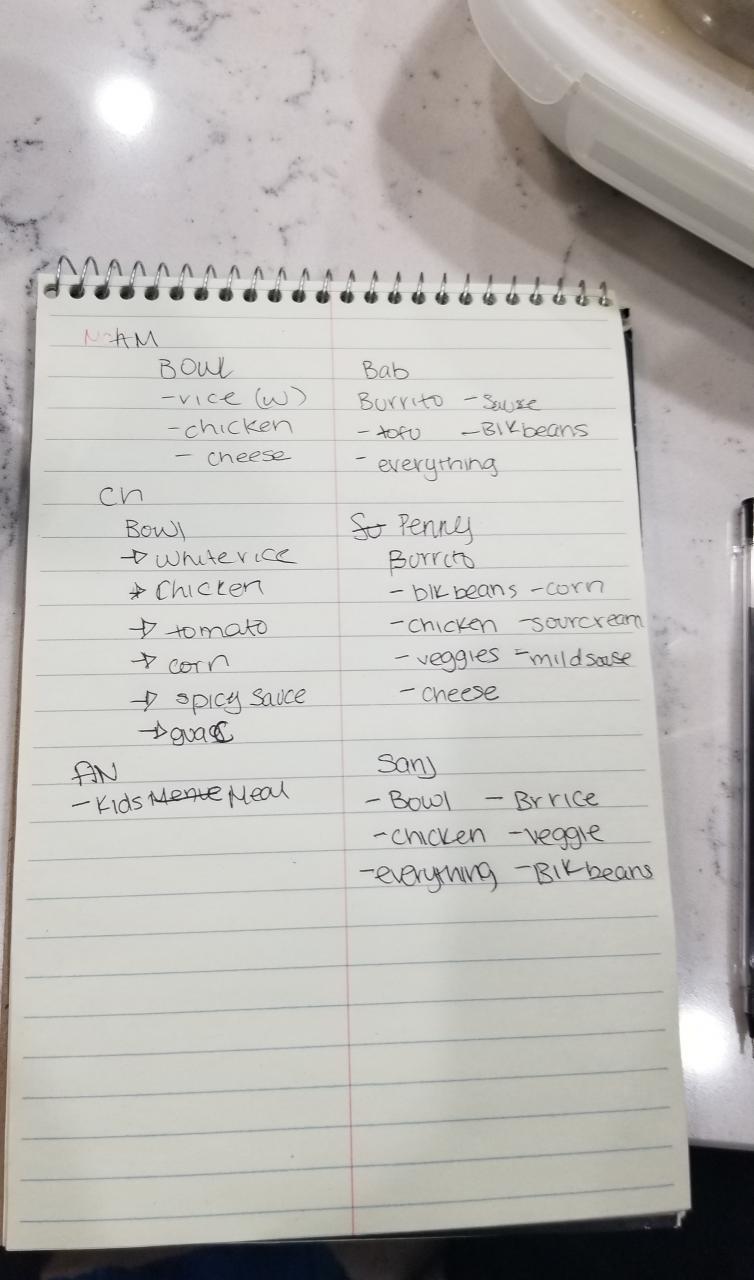 NAM
BOWL
-rice (w)
-chicken
- cheese
CH
Bowl
→ white rice
→ Chicken
→ tomato
→ corn
→ spicy sauce
→ guac
AN
- Kids Menue Meal
Bab
Burrito - Sause
- tofu - Blk beans
- everything
Penny
Burrito
- blk beans - corn
- chicken - sourcream
- veggies - mild sause
- cheese
Sanj
- Bowl - Br rice
- chicken - veggie
- everything - Blk beans